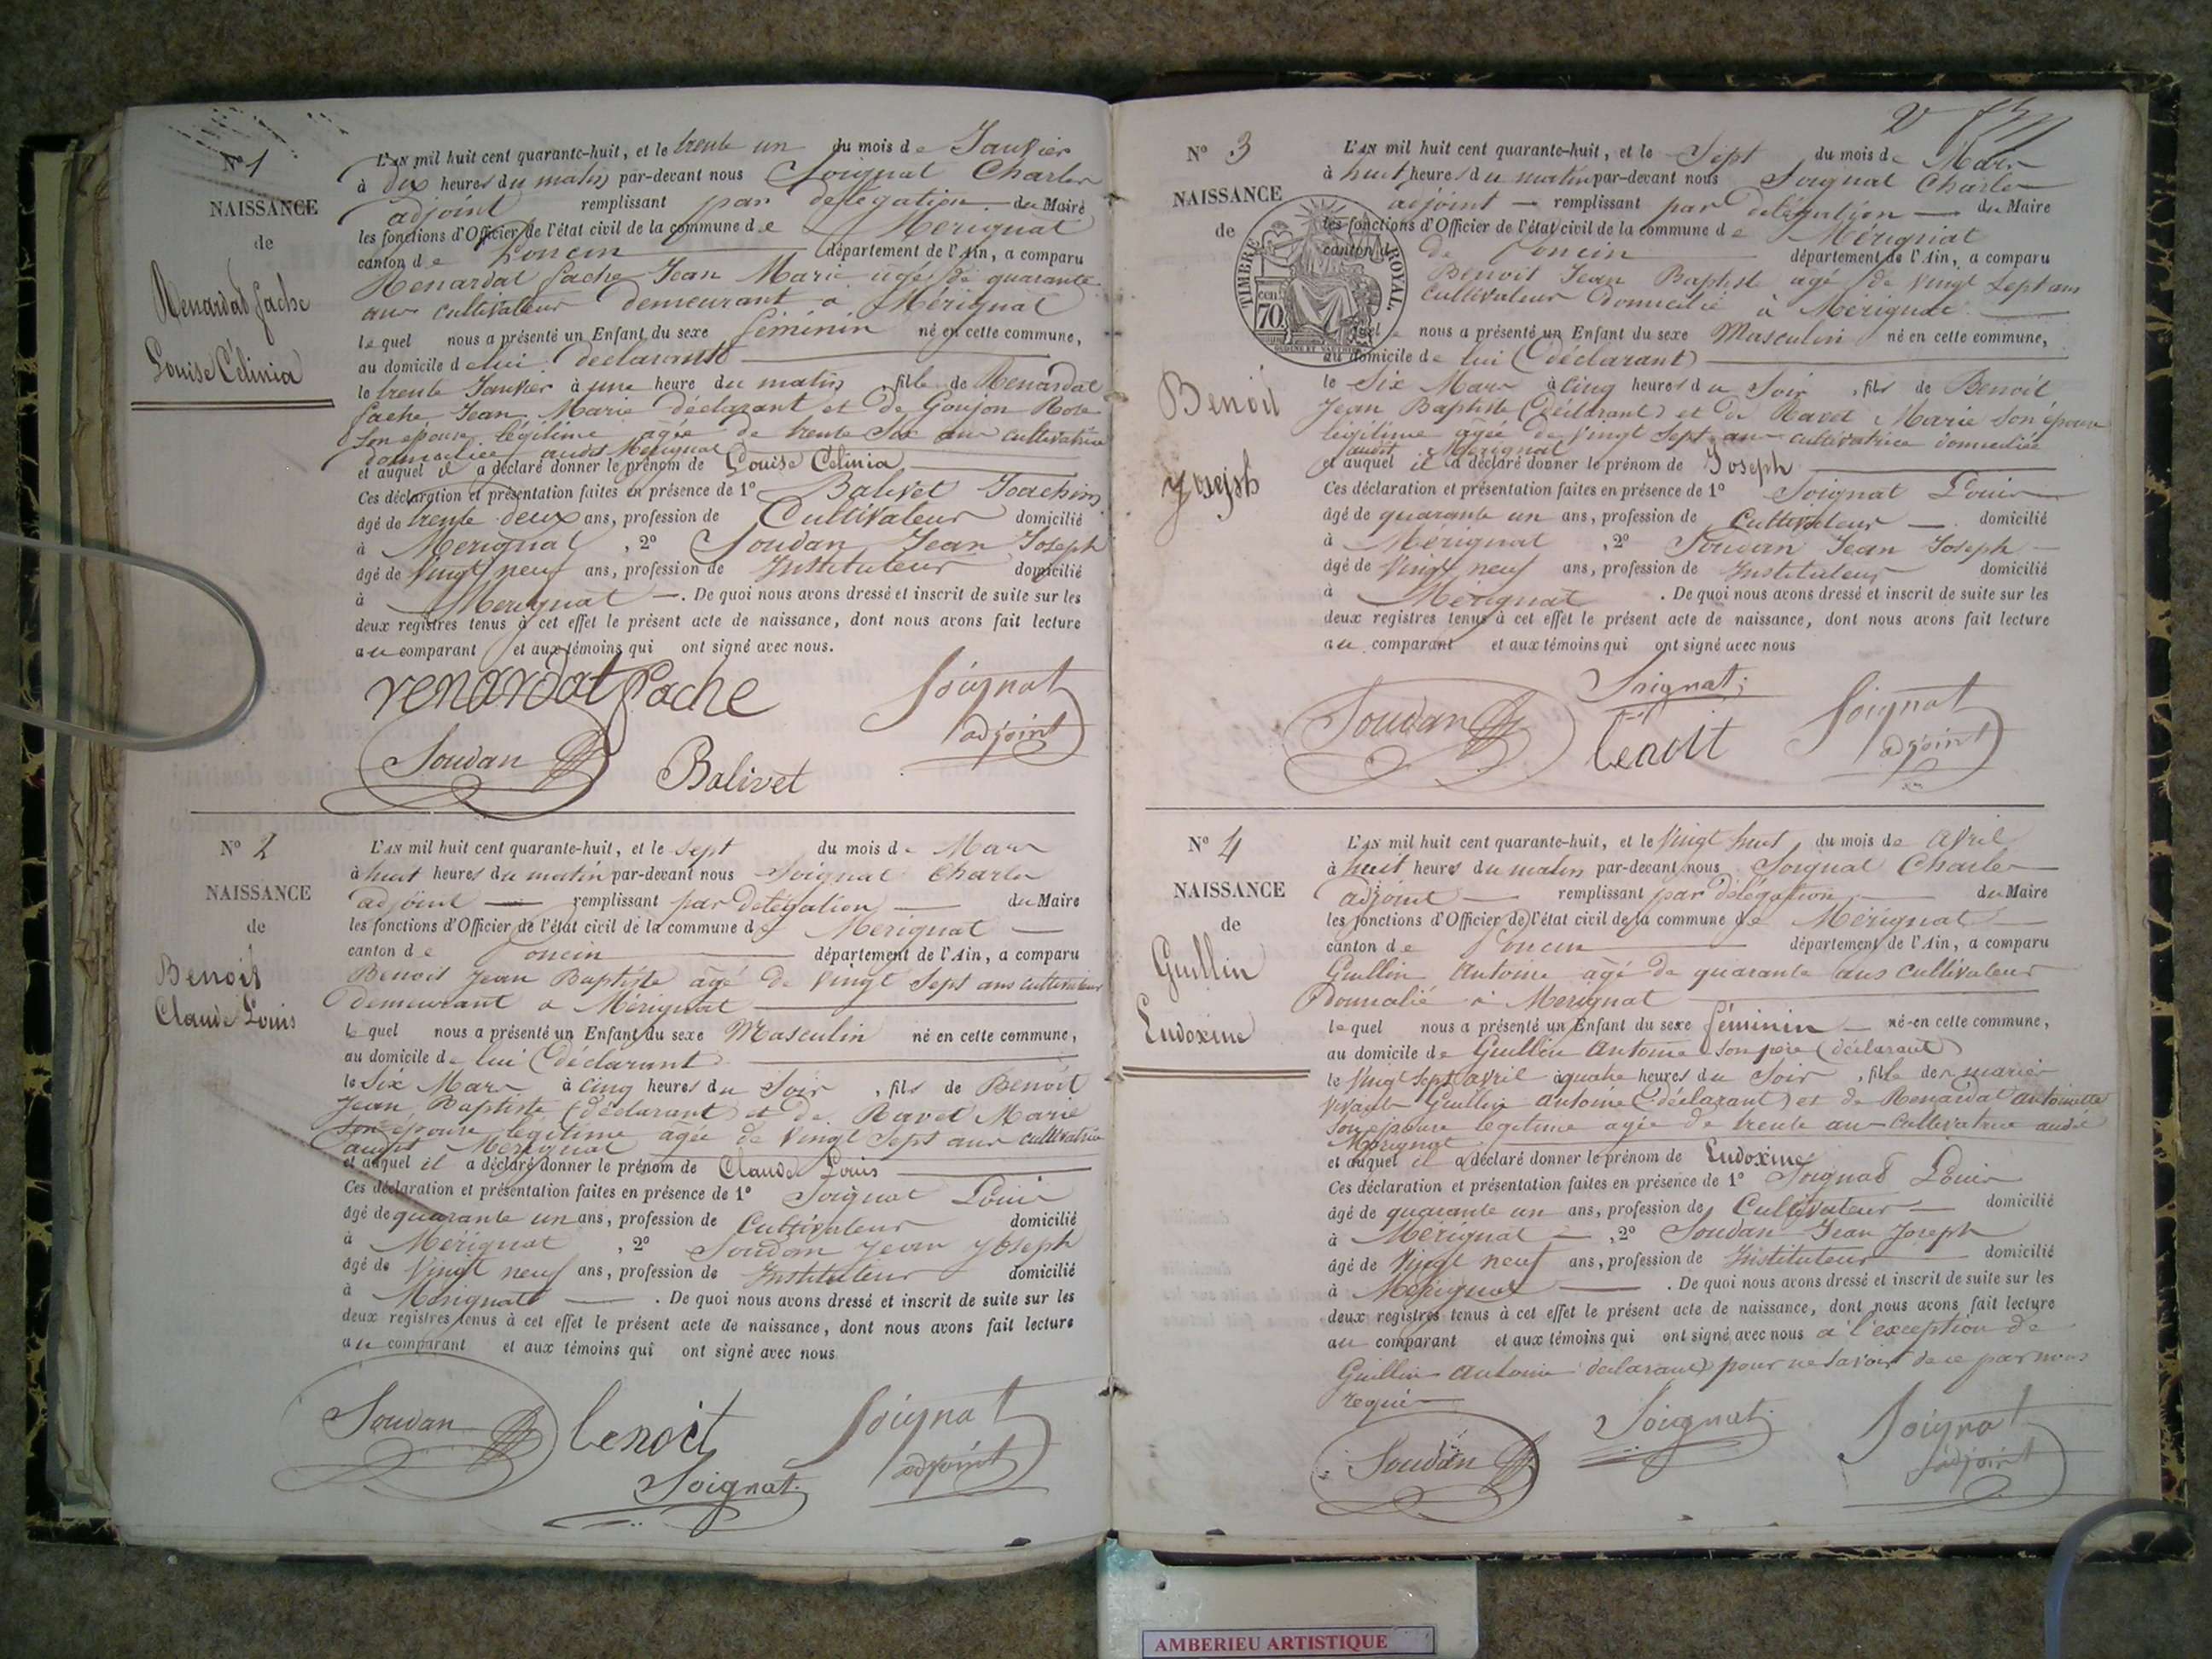 N° 1
NAISSANCE
de
Renardat fache
Louise Célinia
L'AN mil huit cent quarante-huit, et le trente un du mois de Janvier
à dix heures du matin par-devant nous Soignat Charles
adjoint remplissant par délégation du Maire
les fonctions d'Officier de l'état civil de la commune de Mérignat
canton de Poncin département de l'Ain, a comparu
Renardat fache Jean Marie âgé de quarante
ans cultivateur demeurant à Mérignat
lequel nous a présenté un Enfant du sexe féminin né en cette commune,
au domicile de lui déclarant
le trente Janvier à une heure du matin, fille de Renardat
fache Jean Marie déclarant et de Goujon Rose
son épouse légitime âgée de trente six ans cultivatrice
domiciliée audit Mérignat
et auquel il a déclaré donner le prénom de Louise Célinia
Ces déclaration et présentation faites en présence de 1° Balivet Joachim
âgé de trente deux ans, profession de Cultivateur domicilié
à Mérignat, 2° Soudan Jean Joseph
âgé de vingt neuf ans, profession de Instituteur domicilié
à Mérignat. De quoi nous avons dressé et inscrit de suite sur les
deux registres tenus à cet effet le présent acte de naissance, dont nous avons fait lecture
au comparant et aux témoins qui ont signé avec nous.
renardat fache Soignat
adjoint
Soudan Balivet
N° 2
NAISSANCE
de
Benoit
Claude Louis
L'AN mil huit cent quarante-huit, et le sept du mois de Mars
à huit heures du matin par-devant nous Soignat Charles
adjoint remplissant par délégation du Maire
les fonctions d'Officier de l'état civil de la commune de Mérignat
canton de Poncin département de l'Ain, a comparu
Benoit Jean Baptiste âgé de vingt sept ans cultivateur
demeurant à Mérignat
lequel nous a présenté un Enfant du sexe Masculin né en cette commune,
au domicile de lui (déclarant
le Six Mars à cinq heures du Soir, fils de Benoit
Jean Baptiste (déclarant) et de Ravet Marie
son épouse légitime âgée de vingt sept ans cultivatrice
audit Mérignat
et auquel il a déclaré donner le prénom de Claude Louis
Ces déclaration et présentation faites en présence de 1° Soignat Louis
âgé de quarante un ans, profession de Cultivateur domicilié
à Mérignat, 2° Soudan Jean Joseph
âgé de vingt neuf ans, profession de Instituteur domicilié
à Mérignat. De quoi nous avons dressé et inscrit de suite sur les
deux registres tenus à cet effet le présent acte de naissance, dont nous avons fait lecture
au comparant et aux témoins qui ont signé avec nous
Soudan benoit Soignat
adjoint
Soignat
2
N° 3
NAISSANCE
de
TIMBRE ROYAL
70
Benoit
Joseph
L'AN mil huit cent quarante-huit, et le Sept du mois de Mars
à huit heures du matin par-devant nous Soignat Charles
adjoint remplissant par délégation du Maire
les fonctions d'Officier de l'état civil de la commune de Mérignat
canton de Poncin département de l'Ain, a comparu
Benoit Jean Baptiste agé de vingt sept ans
cultivateur domicilié à Mérignat
lequel nous a présenté un Enfant du sexe Masculin né en cette commune,
au domicile de lui (déclarant)
le Six Mars à cinq heures du Soir, fils de Benoit
Jean Baptiste (déclarant) et de Ravet Marie son épouse
légitime âgée de vingt sept ans cultivatrice domiciliée
audit Mérignat
et auquel il a déclaré donner le prénom de Joseph
Ces déclaration et présentation faites en présence de 1° Soignat Louis
âgé de quarante un ans, profession de Cultivateur domicilié
à Mérignat, 2° Soudan Jean Joseph
âgé de vingt neuf ans, profession de Instituteur domicilié
à Mérignat. De quoi nous avons dressé et inscrit de suite sur les
deux registres tenus à cet effet le présent acte de naissance, dont nous avons fait lecture
au comparant et aux témoins qui ont signé avec nous
Soignat
Soudan benoit Soignat
adjoint
N° 4
NAISSANCE
de
Guillin
Eudoxine
L'AN mil huit cent quarante-huit, et le vingt huit du mois de avril
à huit heures du matin par-devant nous Soignat Charles
adjoint remplissant par délégation du Maire
les fonctions d'Officier de l'état civil de la commune de Mérignat
canton de Poncin département de l'Ain, a comparu
Guillin Antoine âgé de quarante ans cultivateur
domicilié à Mérignat
lequel nous a présenté un Enfant du sexe féminin né en cette commune,
au domicile de Guillin Antoine son père (déclarant)
le vingt sept avril à quatre heures du Soir, fille de mariés
vivants Guillin Antoine (déclarant) et de Renardat antoinette
son épouse légitime agée de trente ans cultivatrice audit
Mérignat
et auquel il a déclaré donner le prénom de Eudoxine
Ces déclaration et présentation faites en présence de 1° Soignat Louis
âgé de quarante un ans, profession de Cultivateur domicilié
à Mérignat, 2° Soudan Jean Joseph
âgé de vingt neuf ans, profession de Instituteur domicilié
à Mérignat. De quoi nous avons dressé et inscrit de suite sur les
deux registres tenus à cet effet le présent acte de naissance, dont nous avons fait lecture
au comparant et aux témoins qui ont signé avec nous à l'exception de
Guillin Antoine déclarant pour ne savoir de ce par nous
requis
Soudan Soignat Soignat
adjoint
AMBERIEU ARTISTIQUE